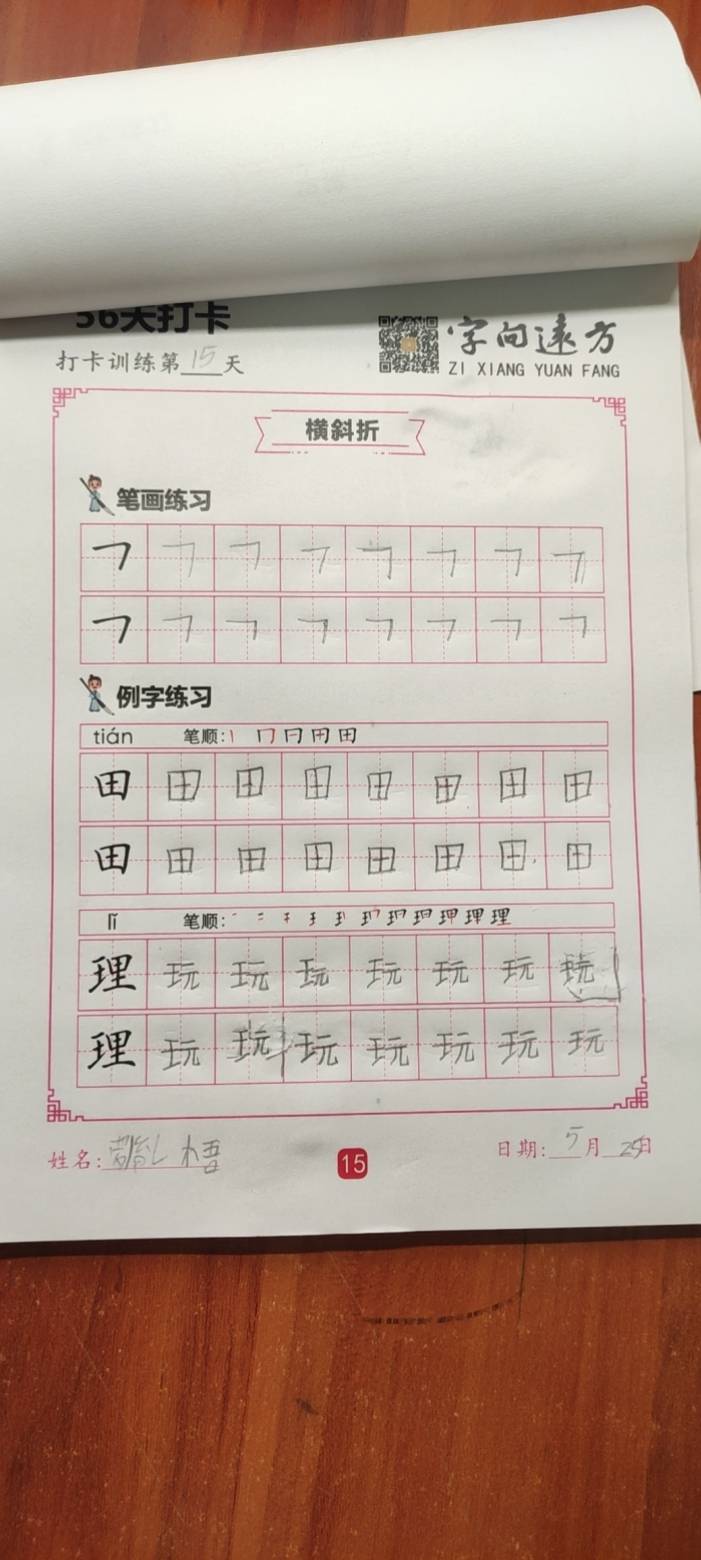 56天打卡
打卡训练第15天
字向远方
ZI XIANG YUAN FANG
横斜折
笔画练习
例字练习
tián 笔顺:
田 田 田 田 田 田 田 田
田 田 田 田 田 田 田 田
lǐ 笔顺:
理 玩 玩 玩 玩 玩 玩 玩
理 玩 玩 玩 玩 玩 玩 玩
姓名: 梧
15
日期:5月25日